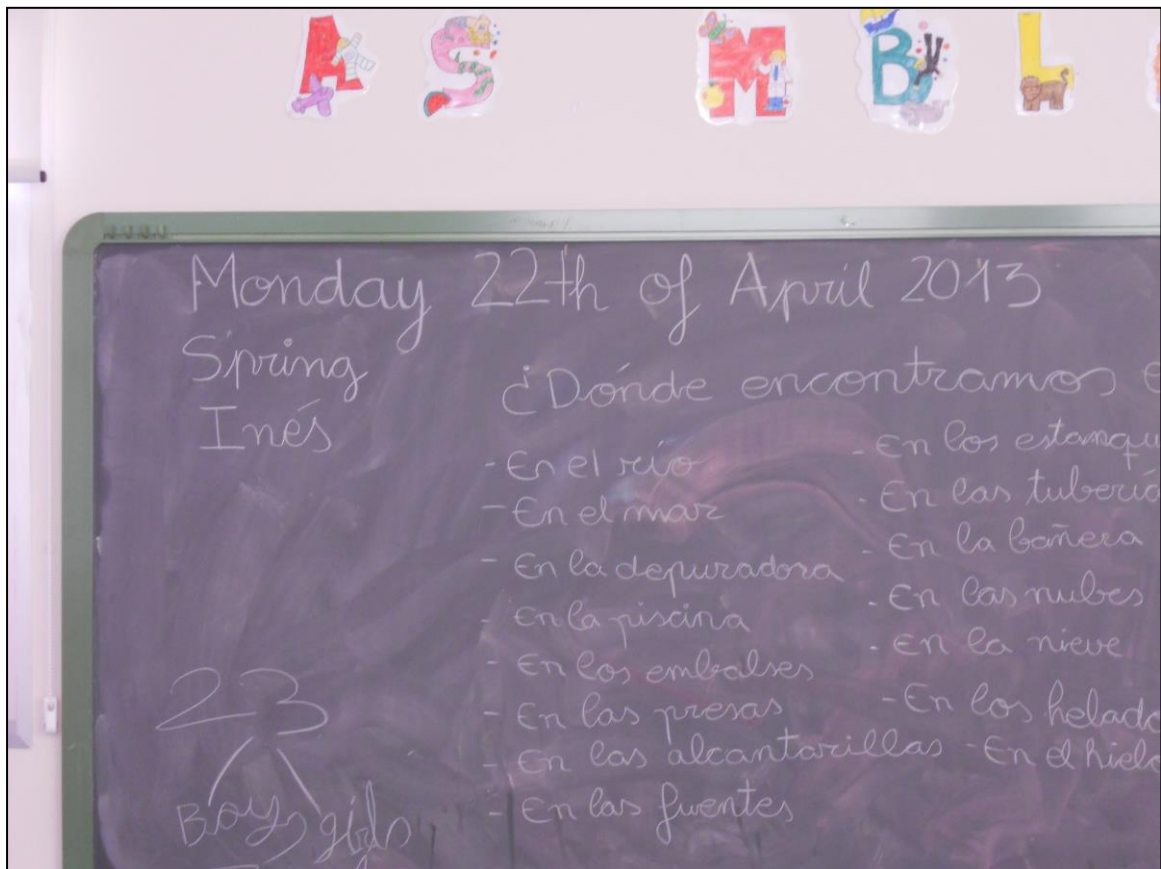 A S M B L
Monday 22th of April 2013
Spring
Inés
¿Dónde encontramos
- En el río
- En el mar
- En la depuradora
- En la piscina
- En los embalses
- En las presas
- En las alcantarillas
- En las fuentes
- En los
- En las
- En la bañera
- En las nubes
- En la nieve
- En los
- En el
23
Boys girls